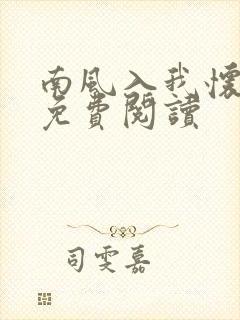 南风入我懷
免費閱讀
司雯嘉